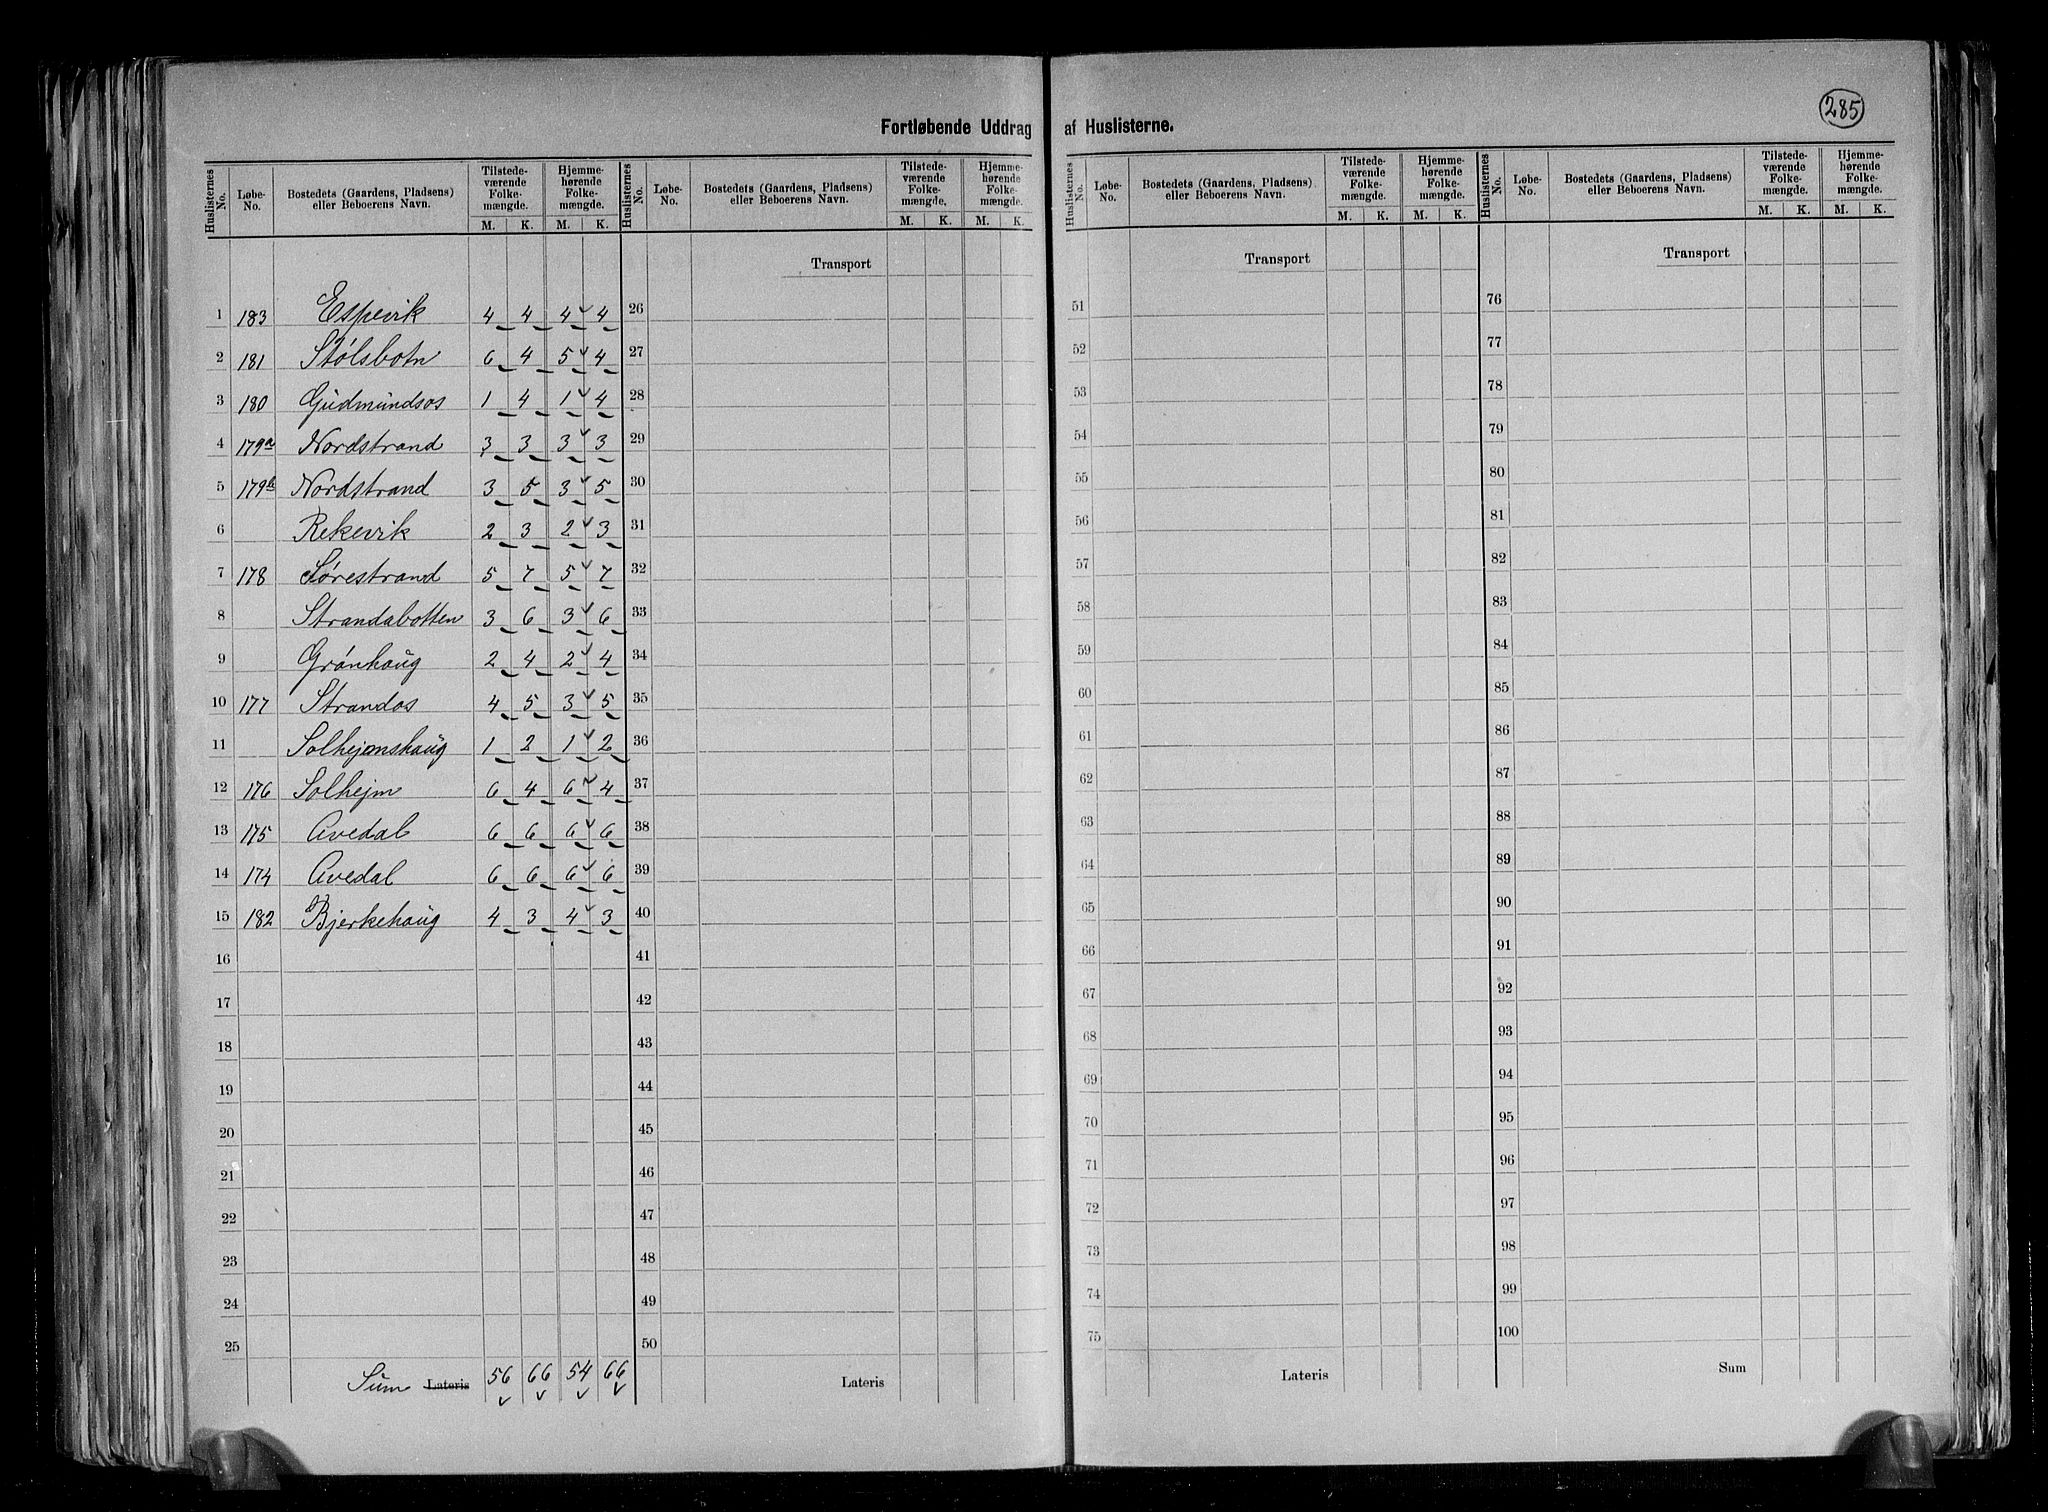 285
Fortløbende Uddrag af Huslisterne.
Huslisternes No. Løbe-No. Bostedets (Gaardens, Pladsens) eller Beboerens Navn. Tilstede-værende Folke-mængde. Hjemme-hørende Folke-mængde.
M. K. M. K.
Huslisternes No. Løbe-No. Bostedets (Gaardens, Pladsens) eller Beboerens Navn. Tilstede-værende Folke-mængde. Hjemme-hørende Folke-mængde.
M. K. M. K.
Transport
1 183 Espevik 4 4 4 4
2 181 Stølsbotn 6 4 5 4
3 180 Gudmundsos 1 4 1 4
4 179a Nordstrand 3 3 3 3
5 179b Nordstrand 3 5 3 5
6 Rekevik 2 3 2 3
7 178 Sørestrand 5 7 5 7
8 Strandabotten 3 6 3 6
9 Grønhaug 2 4 2 4
10 177 Strandos 4 5 3 5
11 Solhejmshaug 1 2 1 2
12 176 Solhejm 6 4 6 4
13 175 Avedal 6 6 6 6
14 174 Avedal 6 6 6 6
15 182 Bjerkehaug 4 3 4 3
16
17
18
19
20
21
22
23
24
25
Sum Lateris 56 66 54 66
26
27
28
29
30
31
32
33
34
35
36
37
38
39
40
41
42
43
44
45
46
47
48
49
50
Lateris
Huslisternes No. Løbe-No. Bostedets (Gaardens, Pladsens) eller Beboerens Navn. Tilstede-værende Folke-mængde. Hjemme-hørende Folke-mængde.
M. K. M. K.
Transport
51
52
53
54
55
56
57
58
59
60
61
62
63
64
65
66
67
68
69
70
71
72
73
74
75
Lateris
Huslisternes No. Løbe-No. Bostedets (Gaardens, Pladsens) eller Beboerens Navn. Tilstede-værende Folke-mængde. Hjemme-hørende Folke-mængde.
M. K. M. K.
Transport
76
77
78
79
80
81
82
83
84
85
86
87
88
89
90
91
92
93
94
95
96
97
98
99
100
Sum